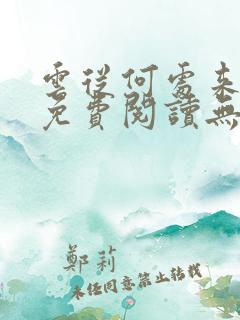 雲從何處來
免費閱讀無
鄭莉
未經同意禁止轉載